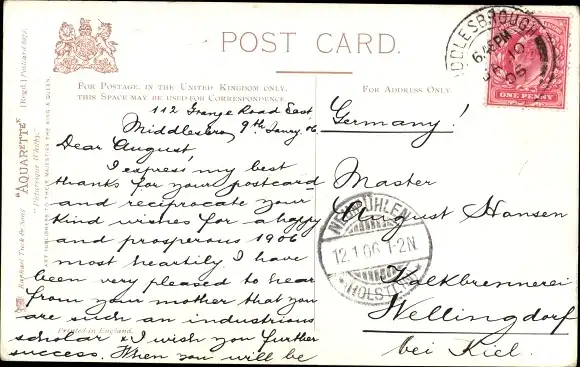 POST CARD.
FOR POSTAGE, IN THE UNITED KINGDOM ONLY,
THIS SPACE MAY BE USED FOR CORRESPONDENCE
FOR ADDRESS ONLY.
Raphael Tuck & Sons' "AQUARETTE" (Regd.) Postcard
"Picturesque Whitby."
THEIR MAJESTIES THE KING & QUEEN.
112 Grange Road East
Middlesbro, 9th Janry. 06
Dear August!
I express my best
thanks for your postcard
and reciprocate your
kind wishes for a happy
and prosperous 1906
most heartily. I have
been very pleased to hear
from your mother that you
are such an industrious
scholar & I wish you further
success. When you will be
Printed in England.
Germany!
Master
August Hansen
Kalkbrennerei
Wellingdorf
bei Kiel.
MIDDLESBROUGH
6.45PM
ONE PENNY
NEUMÜHLEN
12.1.06.1-2N
(HOLST.)